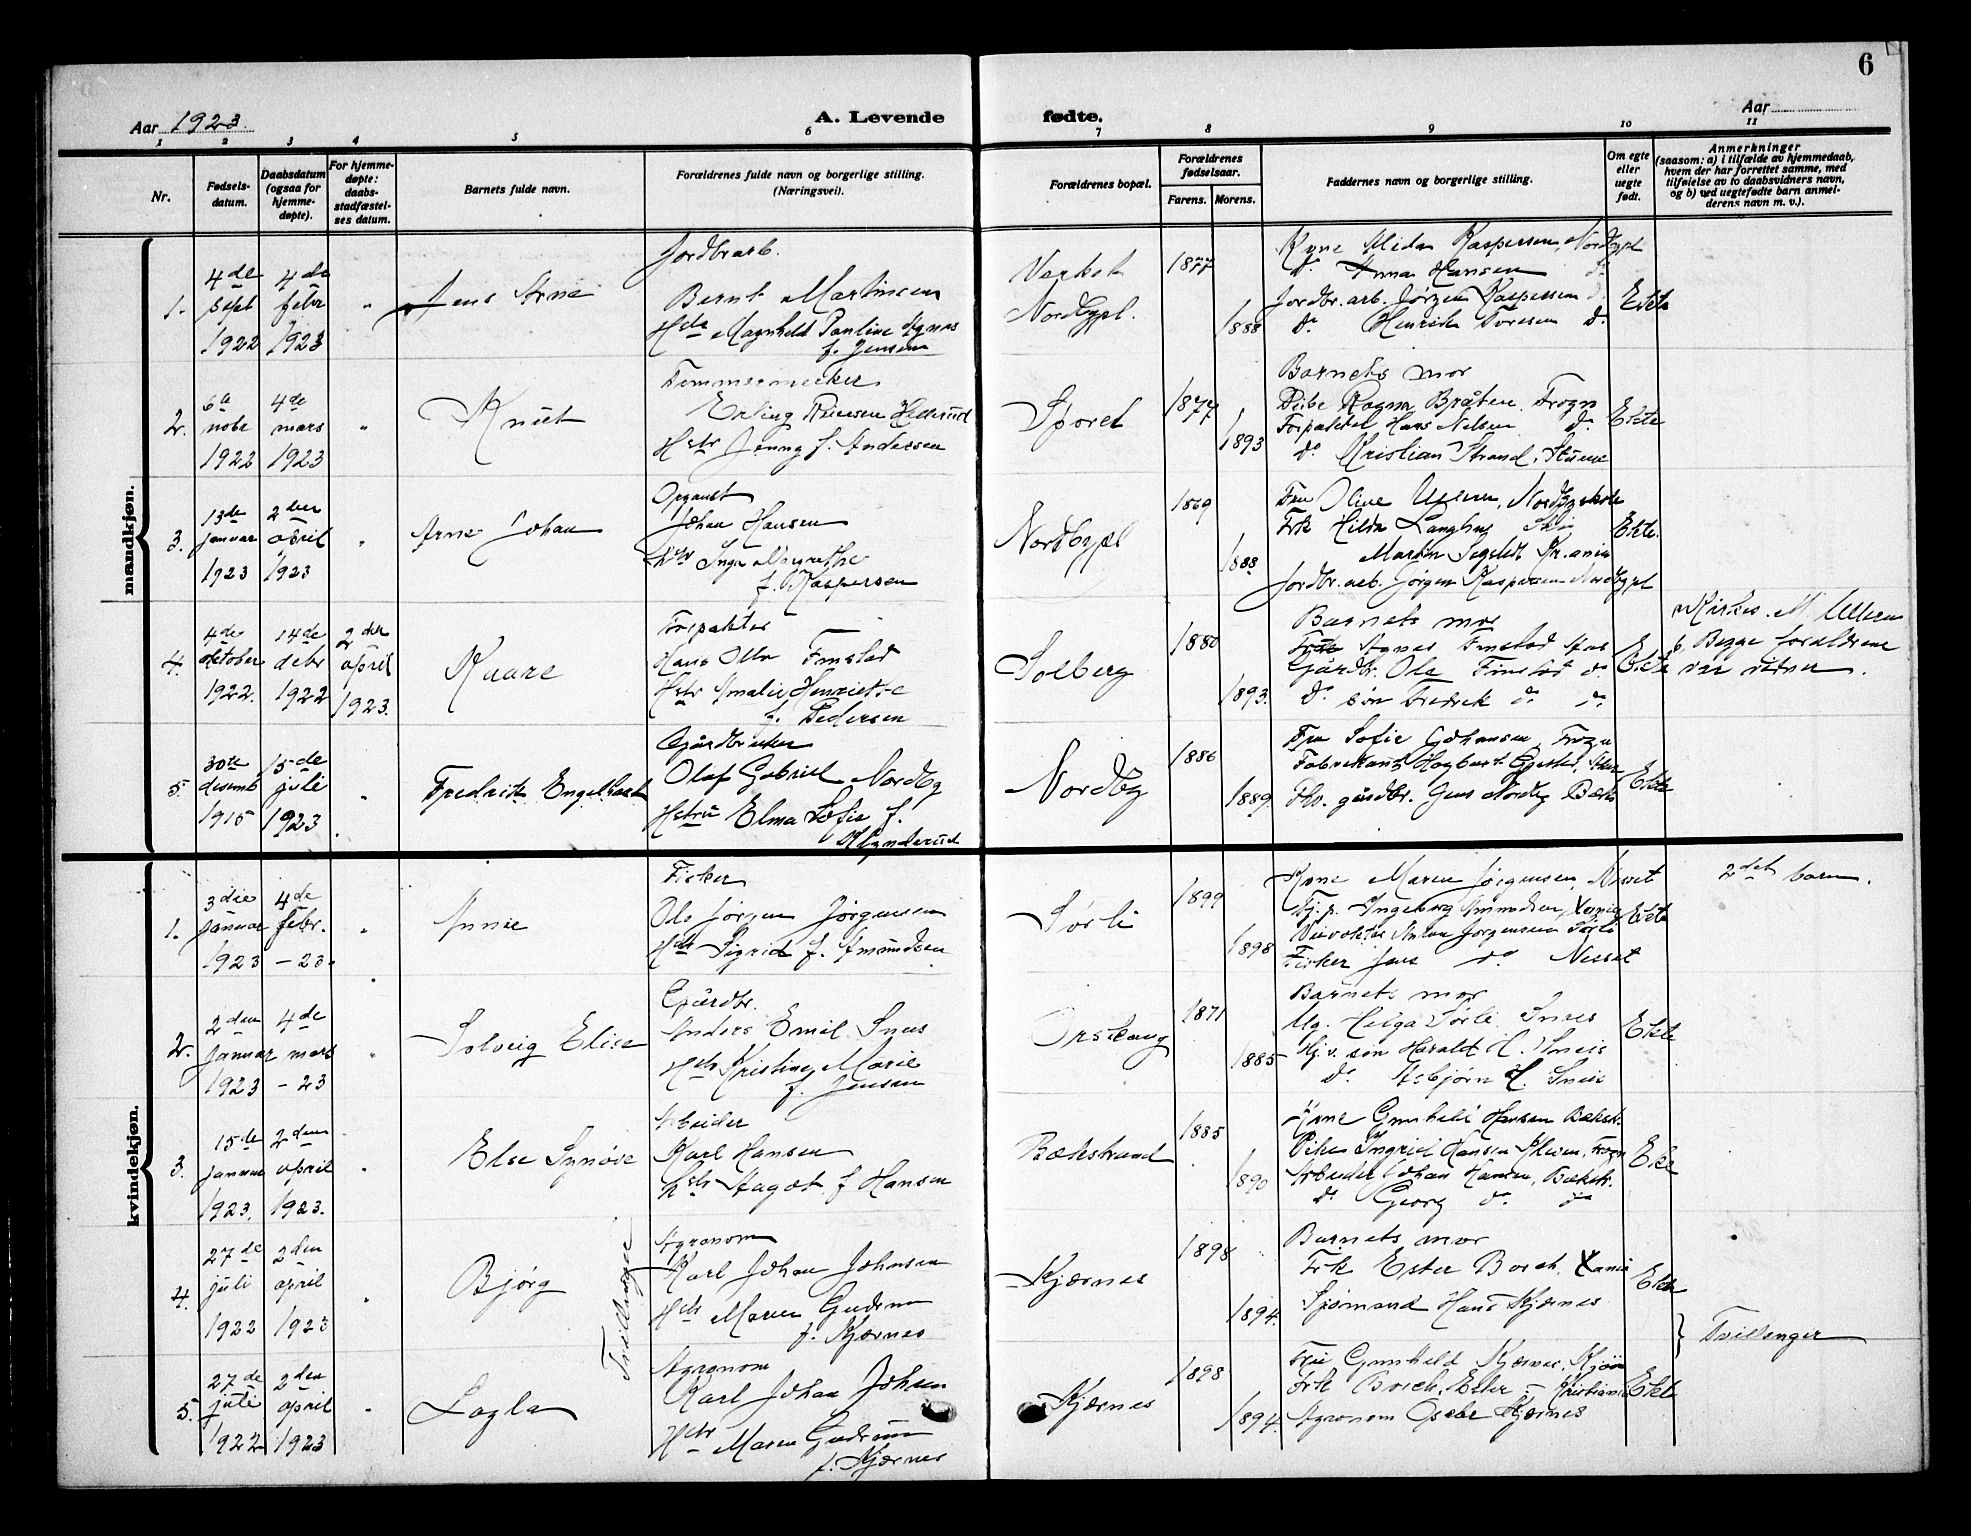 6
Aar 1923.
A. Levende
fødte.
Aar
1 2 3 4 5 6 7 8 9 10 11
Nr.
Fødsels-
datum.
Daabsdatum
(ogsaa for
hjemme-
døpte).
For hjemme-
døpte:
daabs-
stadfæstel-
ses datum.
Barnets fulde navn.
Forældrenes fulde navn og borgerlige stilling.
(Næringsvei).
Forældrenes bopæl.
Forældrenes
fødselsaar.
Farens. Morens.
Faddernes navn og borgerlige stilling.
Om egte
eller
uegte
født.
Anmerkninger
(saasom: a) i tilfælde av hjemmedaab,
hvem der har forrettet samme, med
tilføielse av to daabsvidners navn,
og b) ved uegtefødte barn anmel-
derens navn m. v.).
mandkjøn.
1.
4de
sept
1922
4de
febr
1923
"
Jens Arne
Jordbrarb.
Bernt Martinsen
Hstr Magnhild Pauline Agnes
f. Jensen
Nordbypl.
1877
1888
Kone Kaspersen, Nordbypl
do Anna Hansen do
Jordbr.arb. Jørgen Kaspersen do
do Henrik Toresen do
Ekte
2.
6te
nobr
1922
4de
mars
1923
"
Knut
Tømmermerker
Erling
Hstr Jenny f. Andersen
Sporet
1877
1893
Barnets mor
Pike Ragna Bråten. Frogn
Forpakter Hans Nilsen do
do Kristian Strand,
Ekte
3.
13de
januar
1923
2den
april
1923
"
Arne Johan
Organist
Johan Hansen
Hstr Inga Margrethe
f. Kaspersen
Nordbypl
1869
1888
Fru Olive Ullern, Nordbyskole
Frk Hilda Langhus Ski
Martin Kr.ania
Jordbr.arb. Jørgen Kaspersen Nordbypl
Ekte.
4.
4de
oktober
1922.
14de
debr
1922
2den
april
1923.
Kaare
Forpakter
Hans Otto Finstad
Hstr Amalie Henriette
f. Pedersen
Solberg
1880
1893.
Barnets mor
Agnes Finstad Aas
Gårdbr. Ole Finstad do
do søn Fredrik do do
Ekte
Kirkes. M. Ullern
b. Begge foreldrene
var vidner.
5.
30te
desemb
1915
15de
juli
1923.
"
Fredrik Engelhart
Gårdbruker
Olaf Gabriel Nordby
Hstru Elma Sofie f.
Nordby
1886
1889.
Fru Sofie Johansen, Frogn
Fabrikant
Fhv. gårdbr. Jens Nordby
Ekte
kvindekjøn.
1.
3die
januar
1923
4de
febr.
– 23.
"
Annie
Fisker
Ole Jørgen Jørgensen
Hstr Sigrid f. Amundsen
Sørli
1899
1898
Kone Maren Jørgensen, Nesset
Tj.p. Ingeborg Amundsen, Xania
Veivokter Anton Jørgensen Sørli
Fisker Jens do Nesset
Ekte
2det barn.
2.
2den
januar
1923
4de
mars
– 23
"
Solveig Elise
Gårdbr.
Anders Emil Sneis
Hstr Kristine Marie
f. Jensen
1871
1885
Barnets mor
Ug. Helga Sørli Sneis
Hj.v. søn Harald H. Sneis
do Asbjørn H. Sneis
Ekte
3.
15de
januar
1923.
2den
april
1923.
"
Else Synøve
Arbeider
Karl Hansen
Hstr Aagot f Hansen
Bækstrand
1885
1890
Kone Gunhild Hansen Bækstr.
Piken Ingrid Hansen Skrien, Frogn
Arbeider Johan Hansen, Bækstr.
do Georg do do
Ekte
4.
27de
juli
1922
2den
april
1923
"
Bjørg
Tvillinger
Agronom
Karl Johan Johnsen
Hstr Maren Gudrun
f. Kjærnes
Kjærnes
1898
1894.
Barnets mor
Frk Ester Bosch, Xania
Sjømand Hans Kjærnes
Ekte
} Tvillinger
5.
27de
juli
1922
2den
april
1923
"
Laila
Agronom
Karl Johan Johsen
Hstr Maren Gudrun
f. Kjærnes
Kjærnes
1898
1894.
Fru Gunhild Kjærnes,
Frk Bosch, Ester – Kristiania
Agronom Kjærnes
Ekte